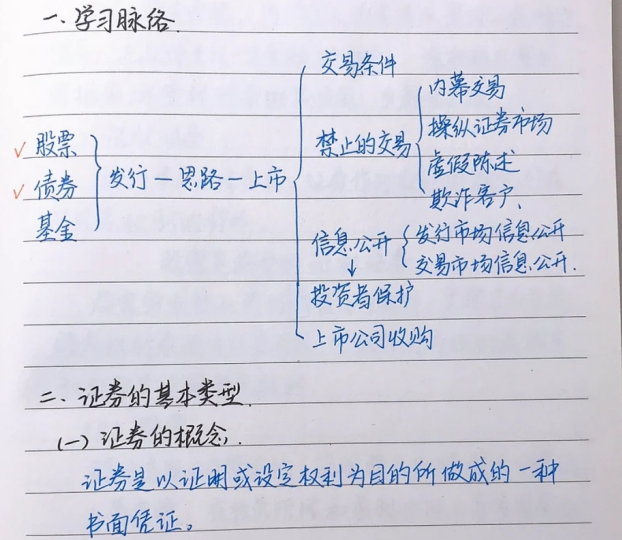 一、学习脉络.
交易条件
内幕交易
禁止的交易
操纵证券市场
虚假陈述
欺诈客户.
✓ 股票
✓ 债券
基金
发行一思路一上市
信息公开
发行市场信息公开
交易市场信息公开.
↓
投资者保护
上市公司收购
二、证券的基本类型.
(一) 证券的概念.
证券是以证明或设定权利为目的所做成的一种
书面凭证。